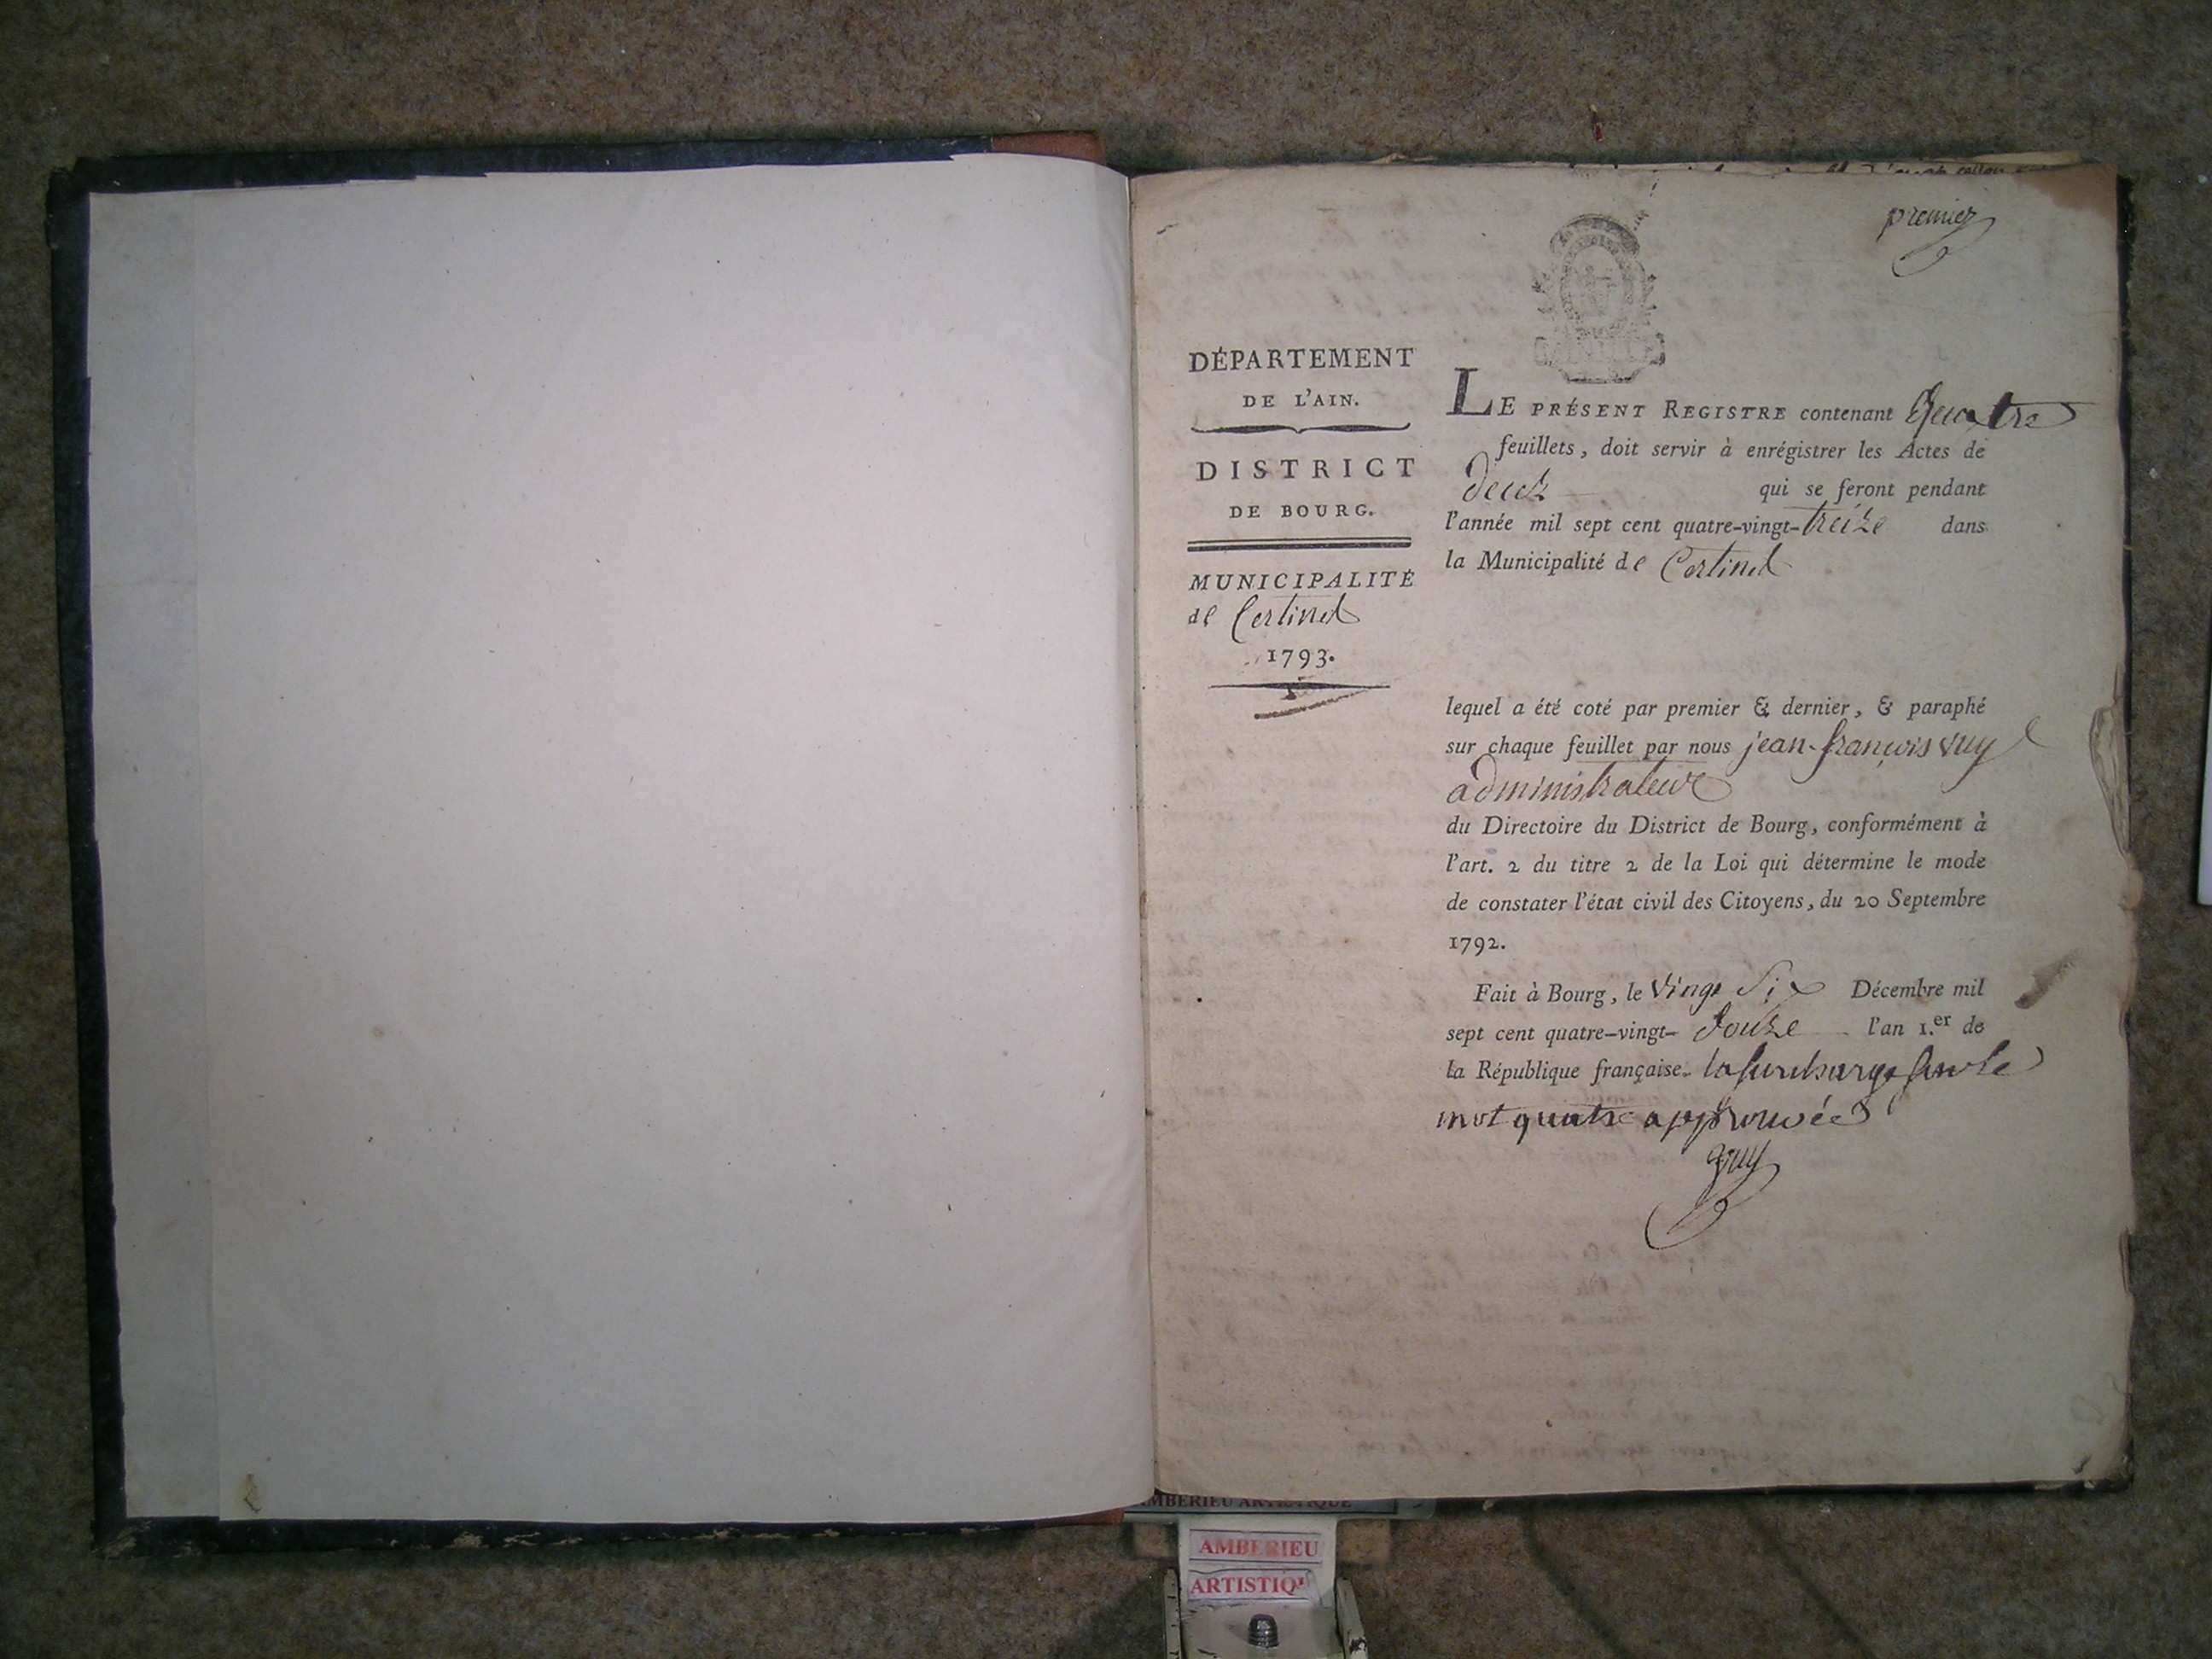 premier
DÉPARTEMENT
DE L'AIN.
DISTRICT
DE BOURG.
MUNICIPALITÉ
de Certine
1793.
LE PRÉSENT REGISTRE contenant Quatre
feuillets, doit servir à enrégistrer les Actes de
qui se feront pendant
l'année mil sept cent quatre-vingt-treize dans
la Municipalité de Certine
lequel a été coté par premier & dernier, & paraphé
sur chaque feuillet par nous jean-françois
administrateur
du Directoire du District de Bourg, conformément à
l'art. 2 du titre 2 de la Loi qui détermine le mode
de constater l'état civil des Citoyens, du 20 Septembre
1792.
Fait à Bourg, le vingt Six Décembre mil
sept cent quatre-vingt- douze l'an 1.er de
la République française. la surcharge sur le
mot quatre approuvée
AMBERIEU ARTISTIQUE
AMBERIEU
ARTISTIQU